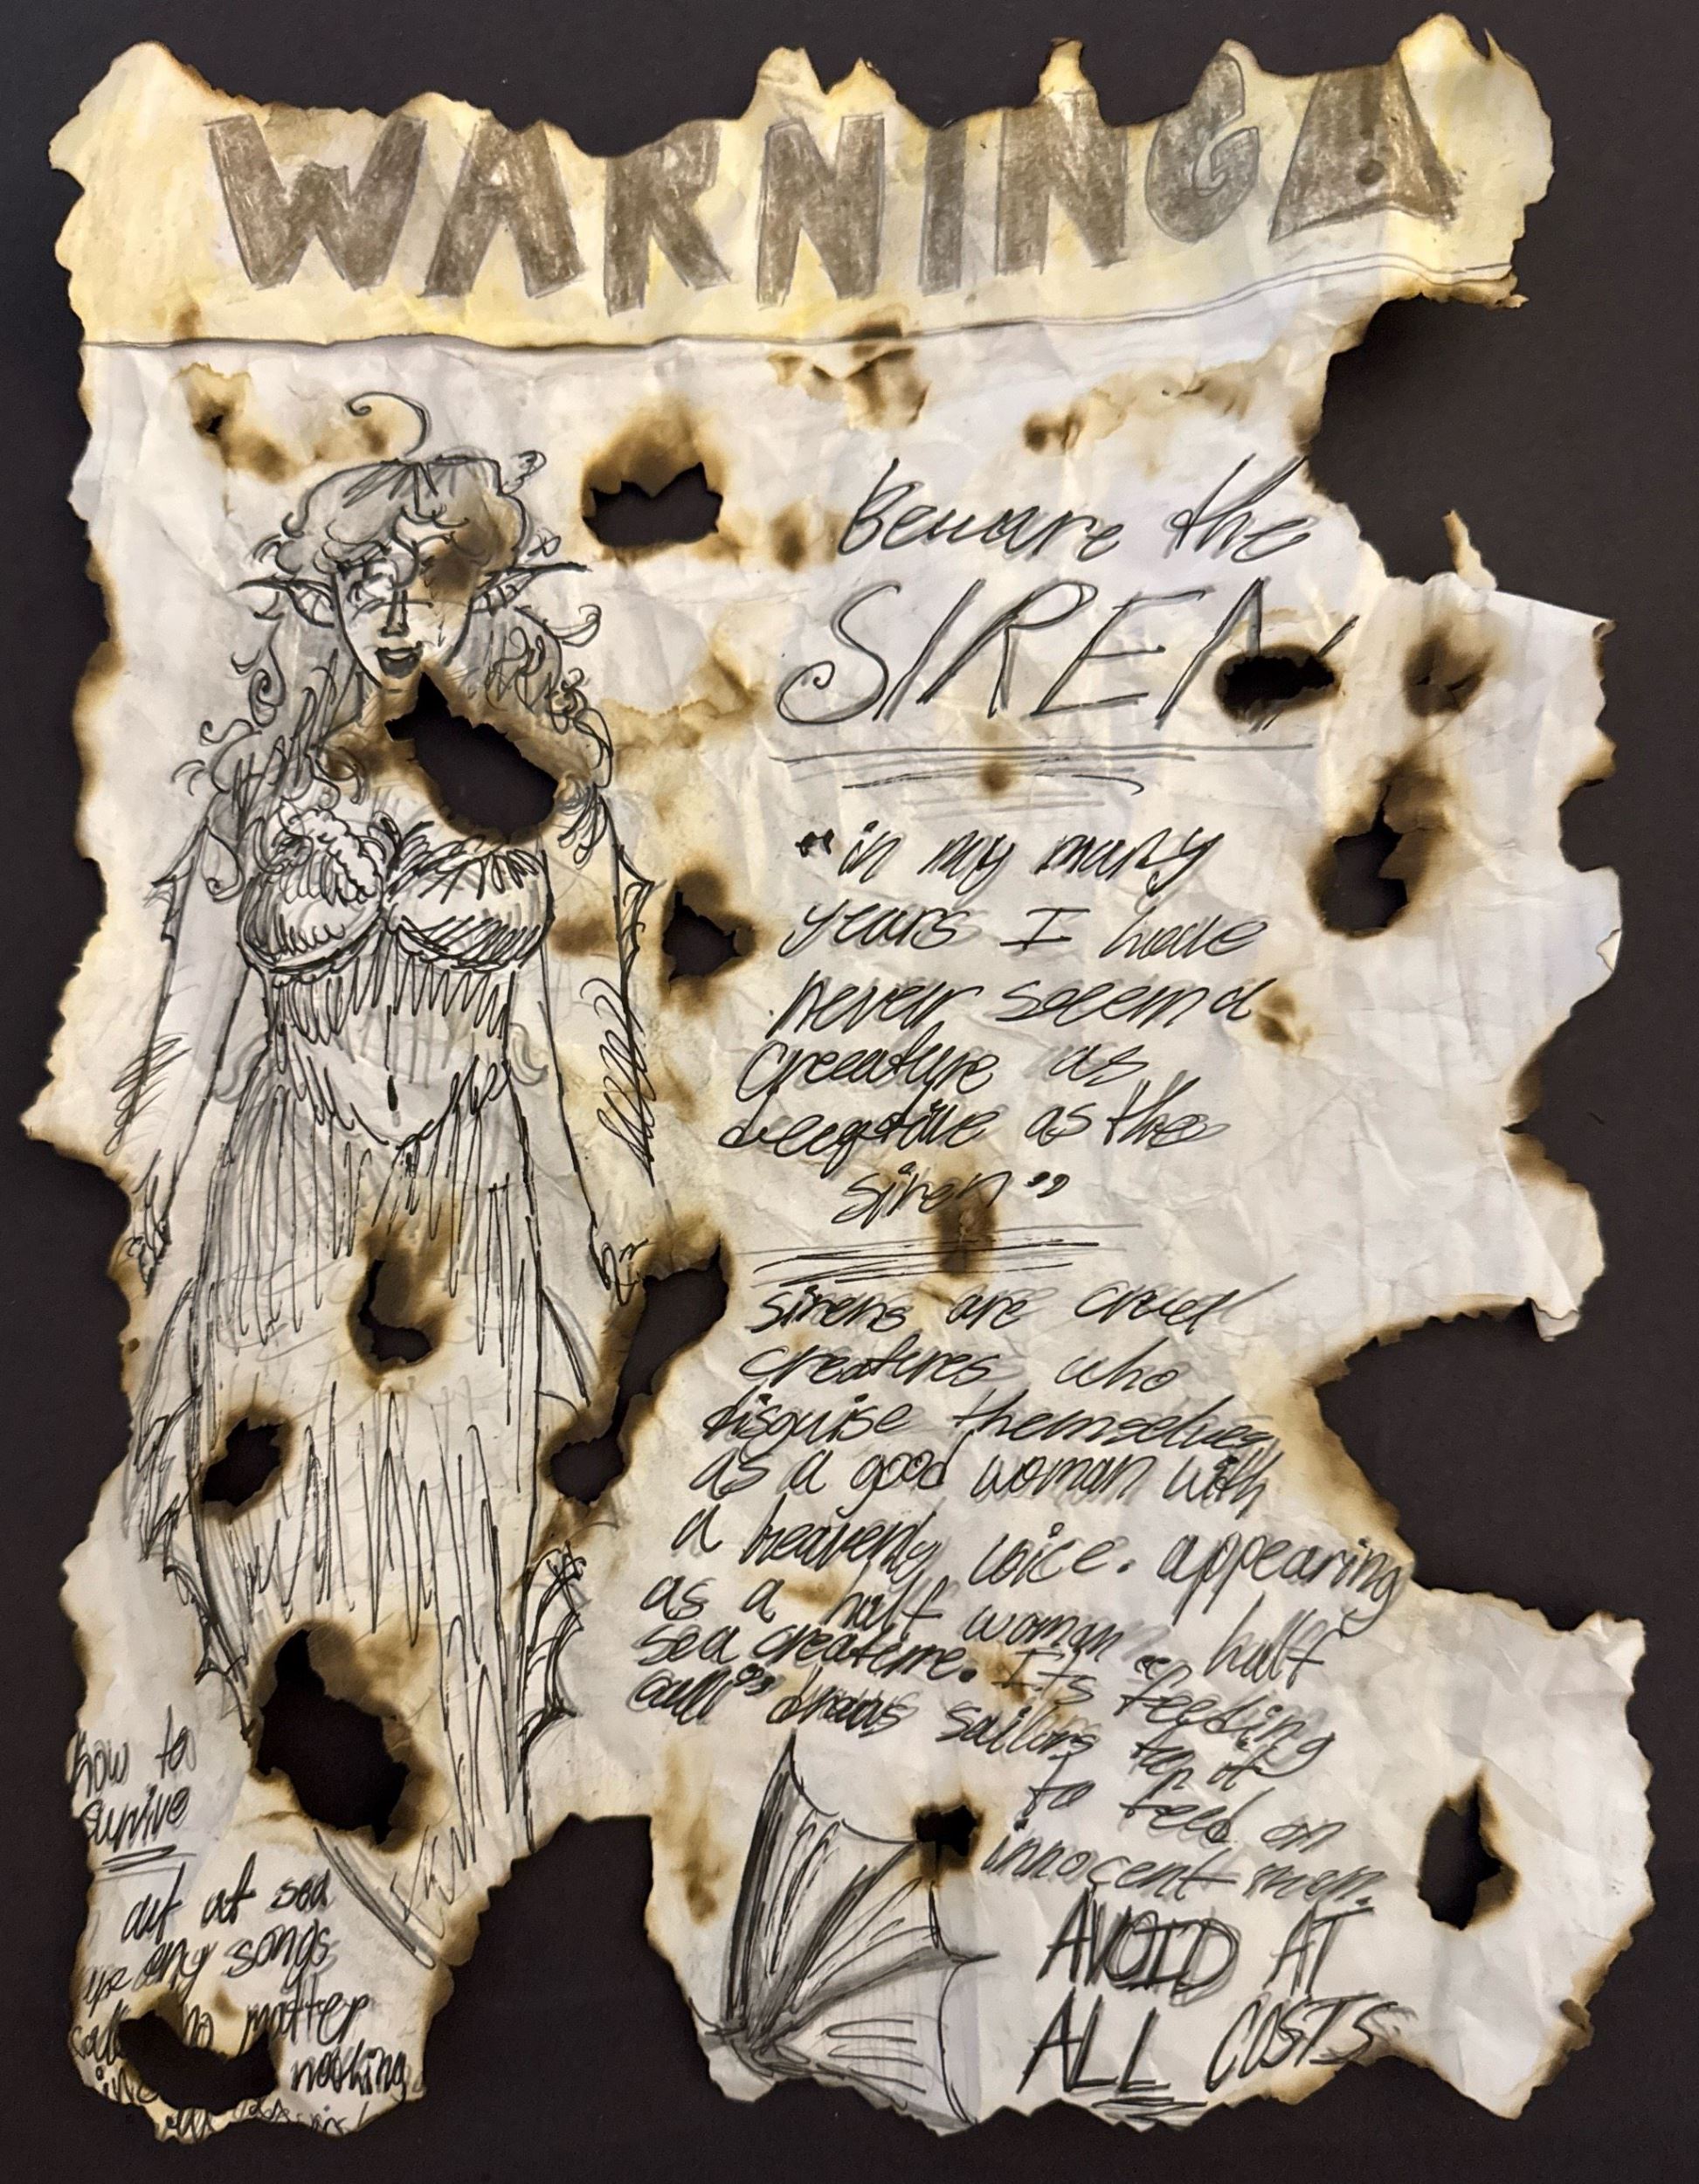 WARNING
Beware the
SIREN
"in my many
years I have
never seem a
creeature as
deeqtive as the
siren"
sirens are cruel
creatures who
disguise themselves
as a good woman with
a heavenly voice. appearing
as a half woman half
sea createrre. Its "feeding
call" draws sailors
to feed on
innocent men.
AVOID AT
ALL COSTS
how to
survive
out at sea
any songs
no matter
nothing